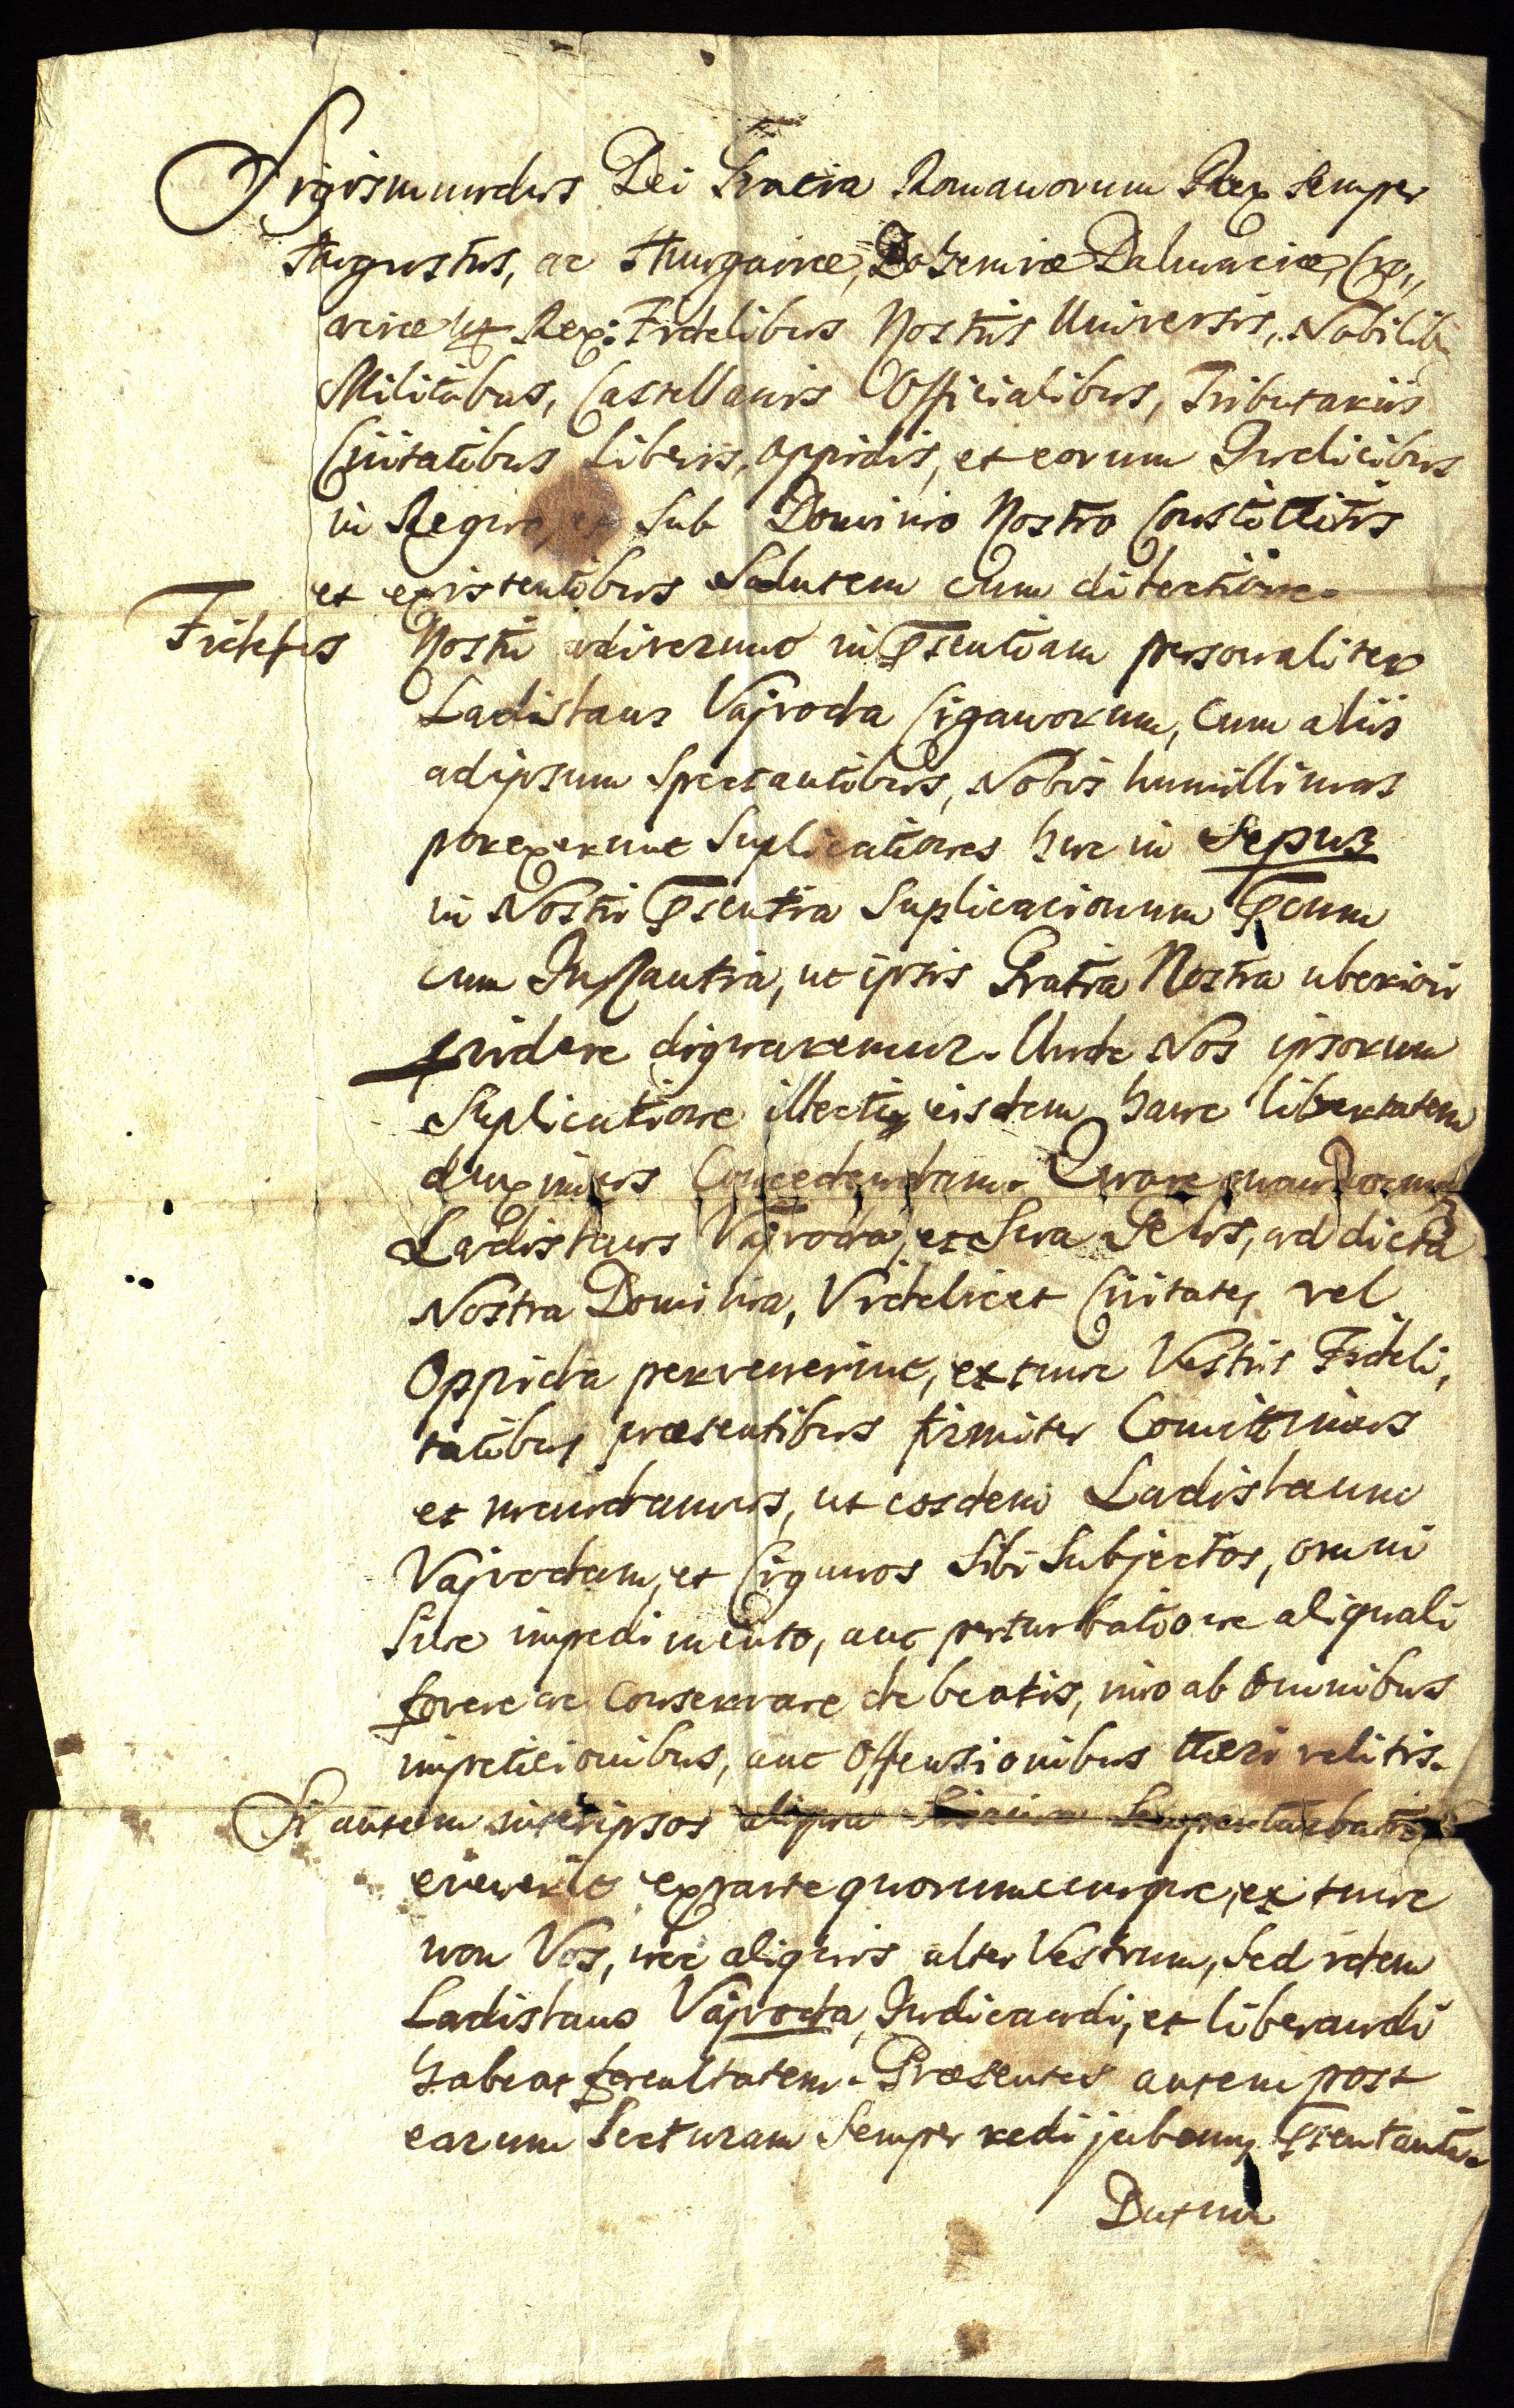 Sigismundus Dei Gracia Romanorum Rex Semper
Augustus, ac Hungariae, Bohemiae Dalmaciae, Cro„
aciae Rex: Fidelibus Nostris Universis, Nobilib
Militibus, Castellanis Officialibus, Tributariis
Civitatibus Liberis, Oppidis, et eorum Iudicibus
in Regno, et Sub Dominio Nostro Constitutis
et existentibus Salutem cum dilectione.
Fideles Nostri adierunt in psentiam personaliter
Ladislaus Vajvoda Ciganorum, Cum aliis
ad ipsum Spectantibus, Nobis humillimas
porexerunt Suplicationes huc in Sepus
in Nostri psentia Suplicacionum pcum
cum Instantia, ut ipsis Gratia Nostra uberiori
pvidere dignaremur. Unde Nos ipsorum
Suplicatione illecti eisdem hanc libertatem
duximus Concedendam. Quare
Ladislaus Vajvoda, et Sua Gens, ad dicta
Nostra Dominia, Videlicet Civitates vel
Oppida pervenerint, ex tunc Vestris Fideli,
tatibus praesentibus firmiter Comittimus
et mandamus, ut eosdem Ladislaum
Vajvodam, et Ciganos Sibi Subjectos, omni
Sine impedimento, aut perturbatione aliquali
fovere ac Conservare debeatis, imo ab Omnibus
impeticionibus, aut Offensionibus tueri velitis.
Si autem inter ipsos aliqua Seu perturbatio
evenerit ex parte quorumcunque, ex tunc
non Vos, nec aliquis alter Vestrum, Sed idem
Ladislaus Vajvoda, Iudicandi, et liberandi
habeat facultatem. Praesentes autem post
earum Lecturam Semper redi jubemus psentanti.
Datum